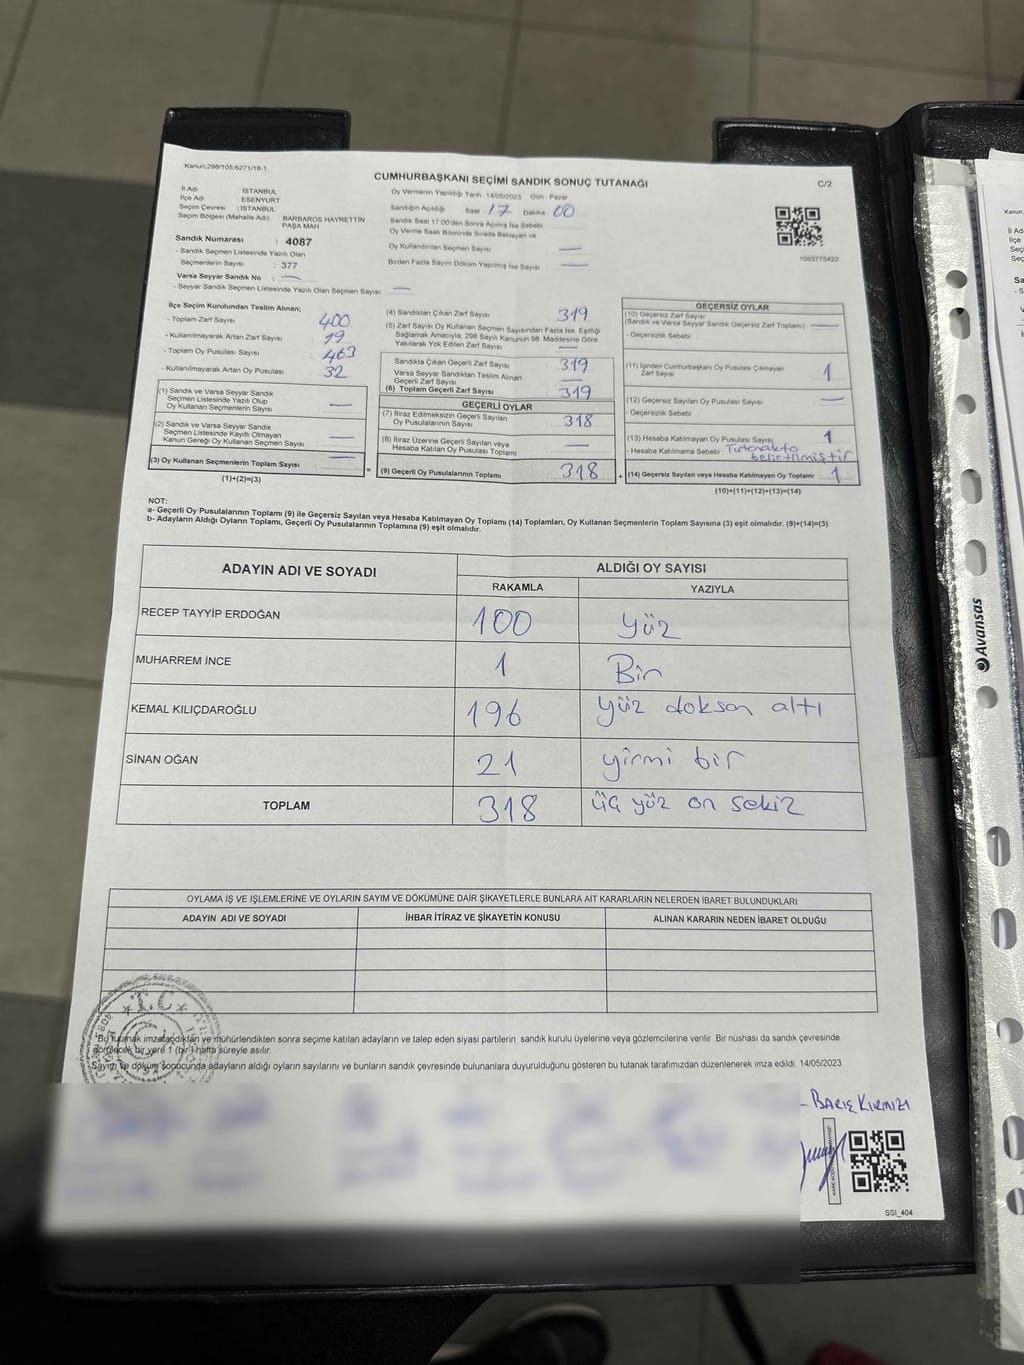 Kanun:298/105 6271/18-1
CUMHURBAŞKANI SEÇİMİ SANDIK SONUÇ TUTANAĞI
C/2
İl Adı : İSTANBUL
İlçe Adı : ESENYURT
Seçim Çevresi : İSTANBUL
Seçim Bölgesi (Mahalle Adı) : BARBAROS HAYRETTİN PAŞA MAH
Sandık Numarası : 4087
- Sandık Seçmen Listesinde Yazılı Olan
Seçmenlerin Sayısı : 377
Varsa Seyyar Sandık No : —
- Seyyar Sandık Seçmen Listesinde Yazılı Olan Seçmen Sayısı: —
Oy Vermenin Yapıldığı Tarih :14/05/2023 Gün : Pazar
Sandığın Açıldığı Saat 17 Dakika 00
Sandık Saat 17:00'den Sonra Açılmış İse Sebebi
Oy Verme Saati Bitiminde Sırada Bekleyen ve
Oy Kullandırılan Seçmen Sayısı —
Birden Fazla Sayım Döküm Yapılmış İse Sayısı —
1093775422
İlçe Seçim Kurulundan Teslim Alınan;
- Toplam Zarf Sayısı 400
- Kullanılmayarak Artan Zarf Sayısı
- Toplam Oy Pusulası Sayısı 463
- Kullanılmayarak Artan Oy Pusulası 32
(1) Sandık ve Varsa Seyyar Sandık
Seçmen Listesinde Yazılı Olup
Oy Kullanan Seçmenlerin Sayısı —
(2) Sandık ve Varsa Seyyar Sandık
Seçmen Listesinde Kayıtlı Olmayan
Kanun Gereği Oy Kullanan Seçmen Sayısı —
(3) Oy Kullanan Seçmenlerin Toplam Sayısı —
(1)+(2)=(3)
(4) Sandıktan Çıkan Zarf Sayısı 319
(5) Zarf Sayısı Oy Kullanan Seçmen Sayısından Fazla İse, Eşitliği
Sağlamak Amacıyla; 298 Sayılı Kanunun 98. Maddesine Göre
Yakılarak Yok Edilen Zarf Sayısı —
Sandıkta Çıkan Geçerli Zarf Sayısı 319
Varsa Seyyar Sandıktan Teslim Alınan
Geçerli Zarf Sayısı —
(6) Toplam Geçerli Zarf Sayısı 319
GEÇERLİ OYLAR
(7) İtiraz Edilmeksizin Geçerli Sayılan
Oy Pusulalarının Sayısı 318
(8) İtiraz Üzerine Geçerli Sayılan veya
Hesaba Katılan Oy Pusulası Toplamı —
(9) Geçerli Oy Pusulalarının Toplamı 318
GEÇERSİZ OYLAR
(10) Geçersiz Zarf Sayısı
(Sandık ve Varsa Seyyar Sandık Geçersiz Zarf Toplamı) —
- Geçersizlik Sebebi
(11) İçinden Cumhurbaşkanı Oy Pusulası Çıkmayan
Zarf Sayısı 1
(12) Geçersiz Sayılan Oy Pusulası Sayısı —
- Geçersizlik Sebebi
(13) Hesaba Katılmayan Oy Pusulası Sayısı 1
- Hesaba Katılmama Sebebi Tutanakta
belirtilmiştir
(14) Geçersiz Sayılan veya Hesaba Katılmayan Oy Toplamı 1
(10)+(11)+(12)+(13)=(14)
NOT:
a- Geçerli Oy Pusulalarının Toplamı (9) ile Geçersiz Sayılan veya Hesaba Katılmayan Oy Toplamı (14) Toplamları, Oy Kullanan Seçmenlerin Toplam Sayısına (3) eşit olmalıdır. (9)+(14)=(3)
b- Adayların Aldığı Oyların Toplamı, Geçerli Oy Pusulalarının Toplamına (9) eşit olmalıdır.
ADAYIN ADI VE SOYADI ALDIĞI OY SAYISI
RAKAMLA YAZIYLA
RECEP TAYYİP ERDOĞAN 100 yüz
MUHARREM İNCE 1 Bir
KEMAL KILIÇDAROĞLU 196 yüz doksan altı
SİNAN OĞAN 21 yirmi bir
TOPLAM 318 üç yüz on sekiz
OYLAMA İŞ VE İŞLEMLERİNE VE OYLARIN SAYIM VE DÖKÜMÜNE DAİR ŞİKAYETLERLE BUNLARA AİT KARARLARIN NELERDEN İBARET BULUNDUKLARI
ADAYIN ADI VE SOYADI İHBAR İTİRAZ VE ŞİKAYETİN KONUSU ALINAN KARARIN NEDEN İBARET OLDUĞU
T.C
Bu tutanak imzalandıktan ve mühürlendikten sonra seçime katılan adayların ve talep eden siyasi partilerin sandık kurulu üyelerine veya gözlemcilerine verilir. Bir nüshası da sandık çevresinde
görülecek bir yere 1 (bir) hafta süreyle asılır.
Sayım ve döküm sonucunda adayların aldığı oyların sayılarını ve bunların sandık çevresinde bulunanlara duyurulduğunu gösteren bu tutanak tarafımızdan düzenlenerek imza edildi. 14/05/2023
- BARIŞ KIRMIZI
SSI_404
Avansas